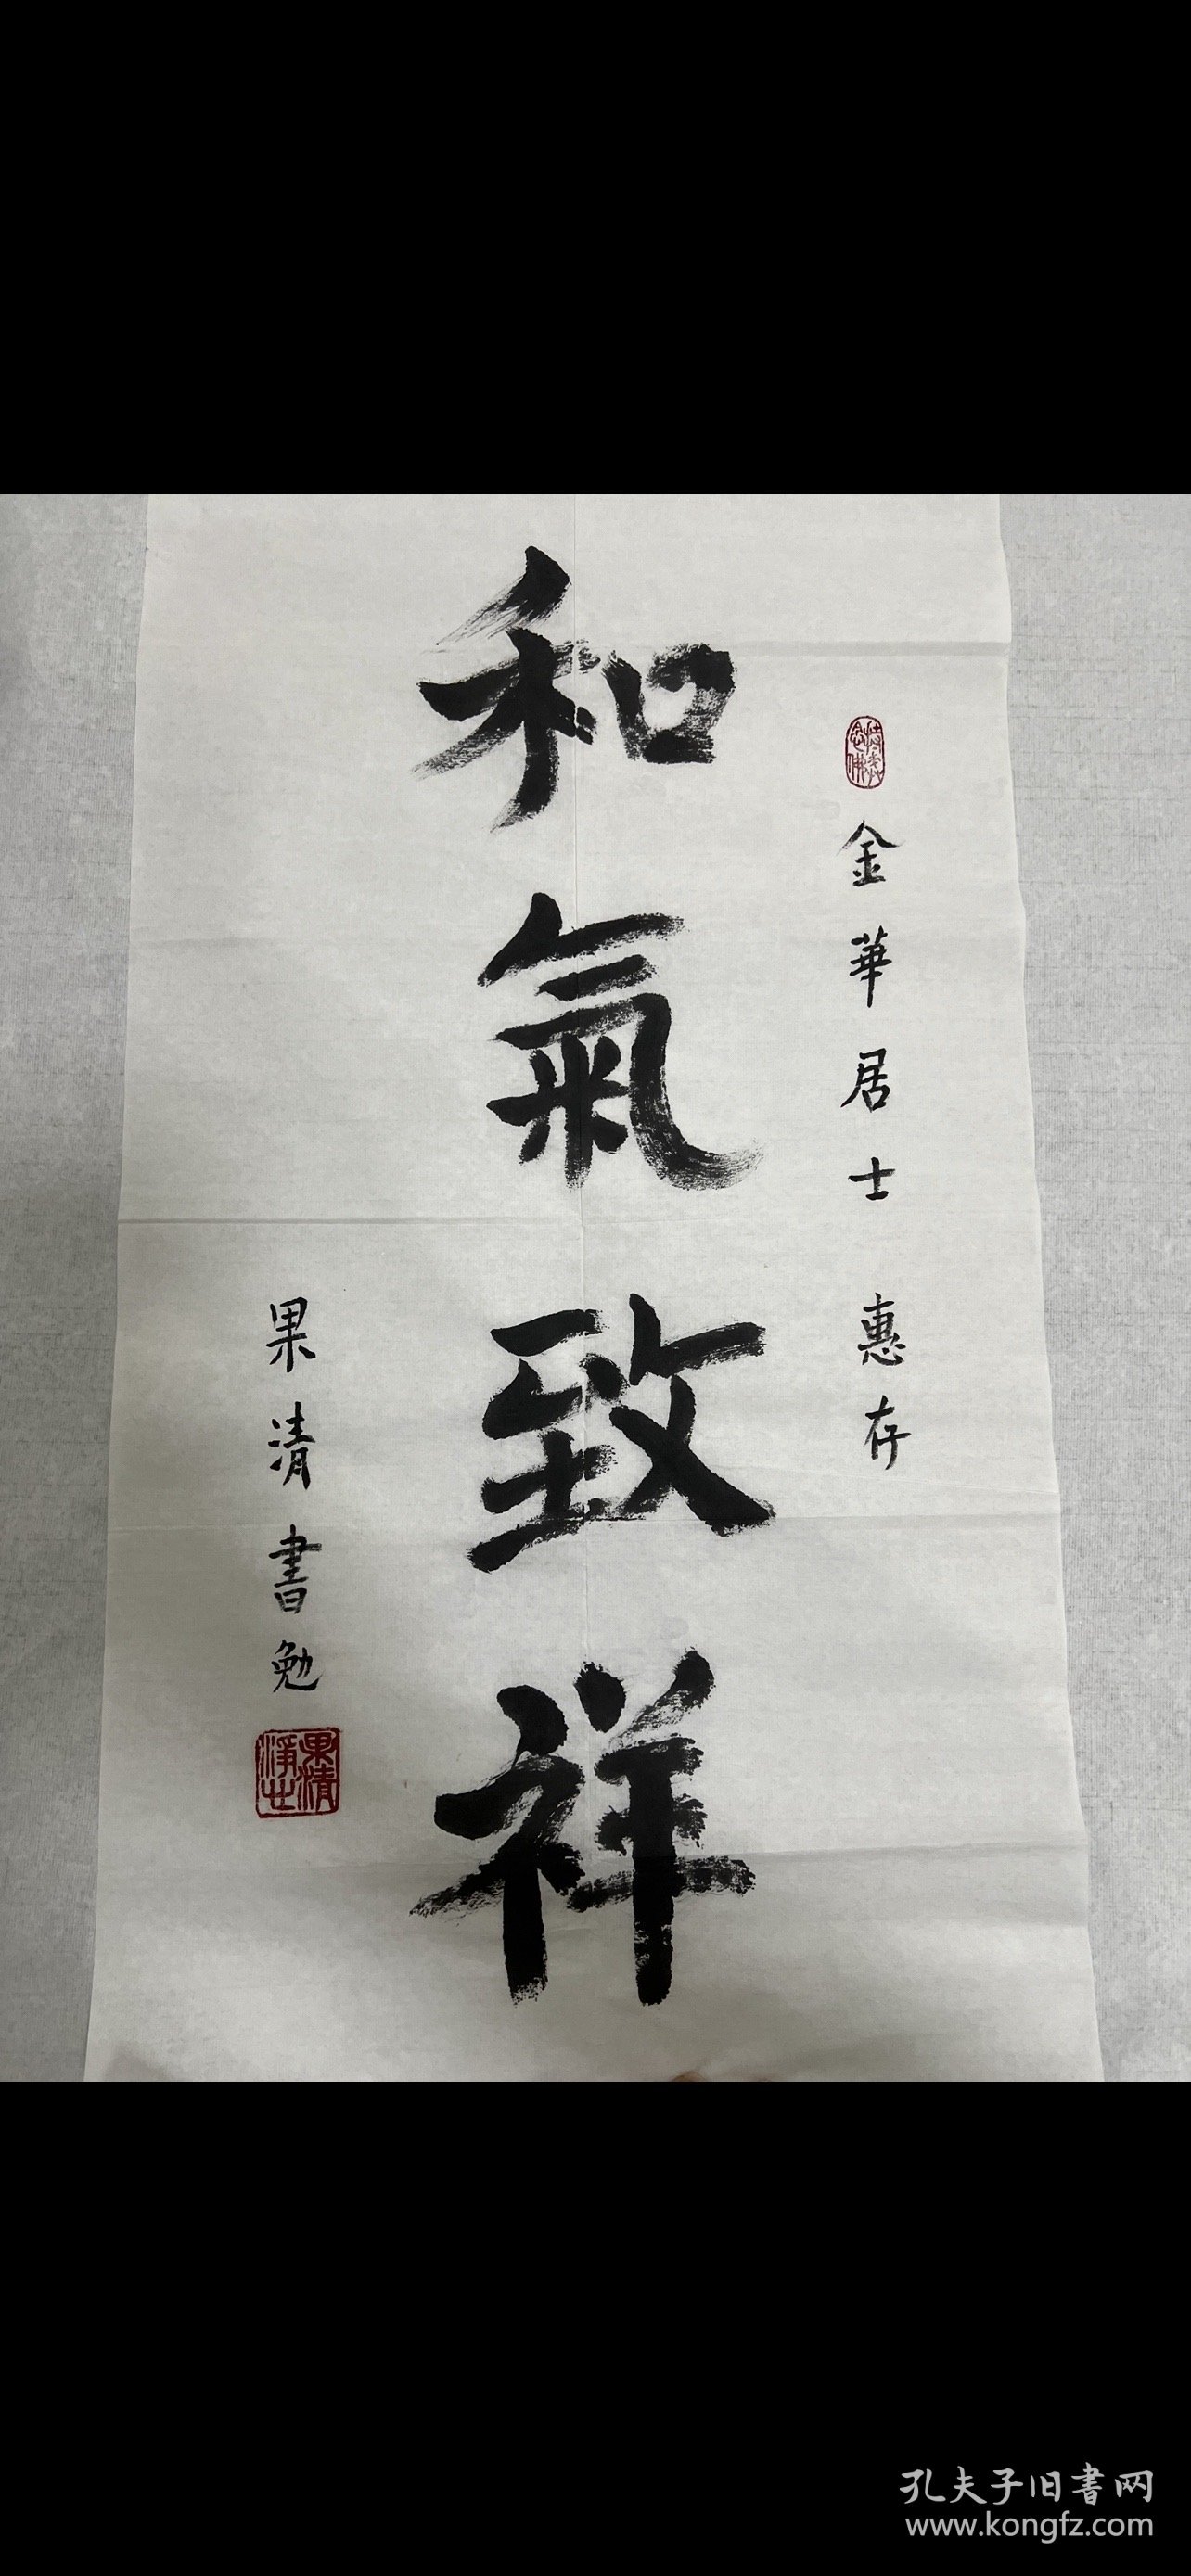 金華居士 惠存
和氣致祥
果清書勉
果清
孔夫子旧書网
www.kongfz.com